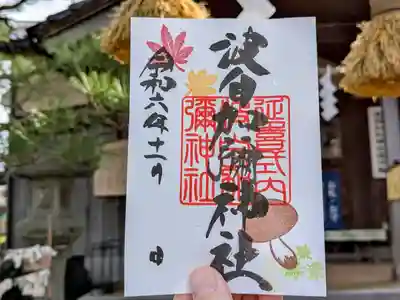 波自加彌神社
延喜式内
波自加
彌神社
令和六年十一月
日